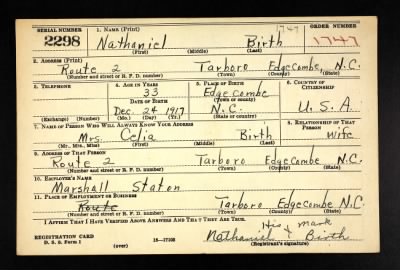 SERIAL NUMBER 1. NAME (Print) 1747 ORDER NUMBER
2298 Nathaniel Birth 1747
(First) (Middle) (Last)
2. ADDRESS (Print)
Route 2 Tarboro Edgecombe, N.C.
(Number and street or R. F. D. number) (Town) (County) (State)
3. TELEPHONE 4. AGE IN YEARS 5. PLACE OF BIRTH 6. COUNTRY OF CITIZENSHIP
33 Edgecombe
DATE OF BIRTH (Town or county)
Dec. 24 1917 N.C. U.S.A.
(Exchange) (Number) (Mo.) (Day) (Yr.) (State or country)
7. NAME OF PERSON WHO WILL ALWAYS KNOW YOUR ADDRESS 8. RELATIONSHIP OF THAT PERSON
Mrs. Celia Birth wife
(Mr., Mrs., Miss) (First) (Middle) (Last)
9. ADDRESS OF THAT PERSON
Route 2 Tarboro Edgecombe N.C.
(Number and street or R. F. D. number) (Town) (County) (State)
10. EMPLOYER'S NAME
Marshall Staton
11. PLACE OF EMPLOYMENT OR BUSINESS
Route Tarboro Edgecombe N.C.
(Number and street or R. F. D. number) (Town) (County) (State)
I AFFIRM THAT I HAVE VERIFIED ABOVE ANSWERS AND THAT THEY ARE TRUE.
His mark
REGISTRATION CARD Nathanial X Birth
D. S. S. Form 1 (over) 16—17105 (Registrant's signature)